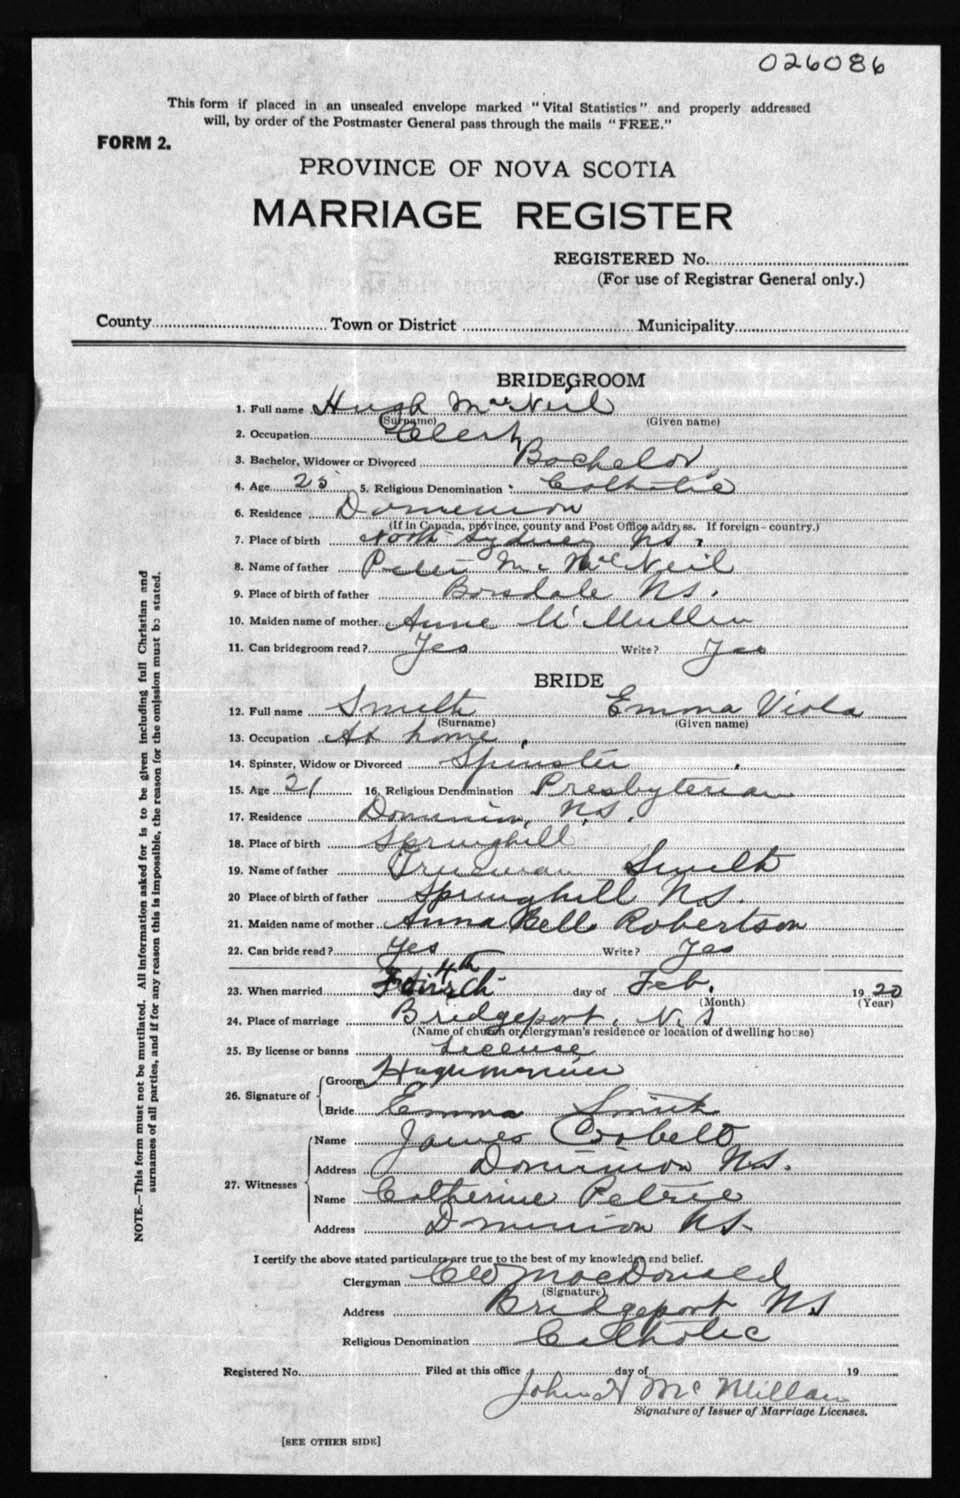 026086
This form if placed in an unsealed envelope marked "Vital Statistics" and properly addressed
will, by order of the Postmaster General pass through the mails "FREE."
FORM 2.
PROVINCE OF NOVA SCOTIA
MARRIAGE REGISTER
REGISTERED No.
(For use of Registrar General only.)
County Town or District Municipality
BRIDEGROOM
1. Full name Hugh MacNeil
(Surname) (Given name)
2. Occupation Clerk
3. Bachelor, Widower or Divorced Bachelor
4. Age 25 5. Religious Denomination Catholic
6. Residence Dominion
(If in Canada, province, county and Post Office address. If foreign—country.)
7. Place of birth North Sydney NS.
8. Name of father Peter Mc MacNeil
9. Place of birth of father NS.
10. Maiden name of mother Anne McMullin
11. Can bridegroom read? Yes Write? Yes
BRIDE
12. Full name Smith Emma Viola
(Surname) (Given name)
13. Occupation At home.
14. Spinster, Widow or Divorced Spinster
15. Age 21 16. Religious Denomination Presbyterian
17. Residence Dominion, N.S.
18. Place of birth Springhill
19. Name of father Trueman Smith
20 Place of birth of father Springhill NS.
21. Maiden name of mother Anna Bell Robertson
22. Can bride read? Yes Write? Yes
23. When married 4th day of Feb. 1920
(Month) (Year)
24. Place of marriage Bridgeport, N.S
(Name of church or clergyman's residence or location of dwelling house)
25. By license or banns License
26. Signature of Groom Hugh
Bride Emma Smith
27. Witnesses Name James
Address Dominion NS.
Name Catherine Petrie
Address Dominion NS.
I certify the above stated particulars are true to the best of my knowledge and belief.
Clergyman MacDonald
(Signature)
Address Bridgeport NS
Religious Denomination Catholic
Registered No. Filed at this office day of 19
John H McMillan
Signature of Issuer of Marriage Licenses.
[SEE OTHER SIDE]
NOTE.—This form must not be mutilated. All information asked for is to be given including full Christian and
surnames of all parties, and if for any reason this is impossible, the reason for the omission must be stated.